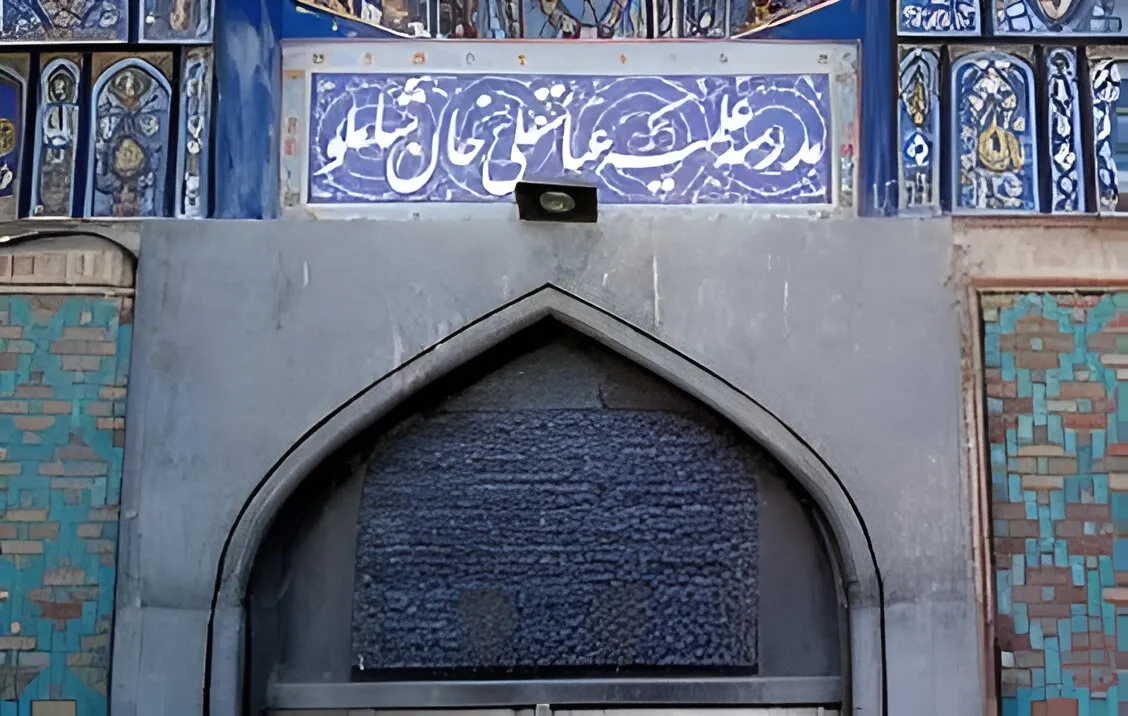 مدرسه علمیه عباسقلی خان شاملو